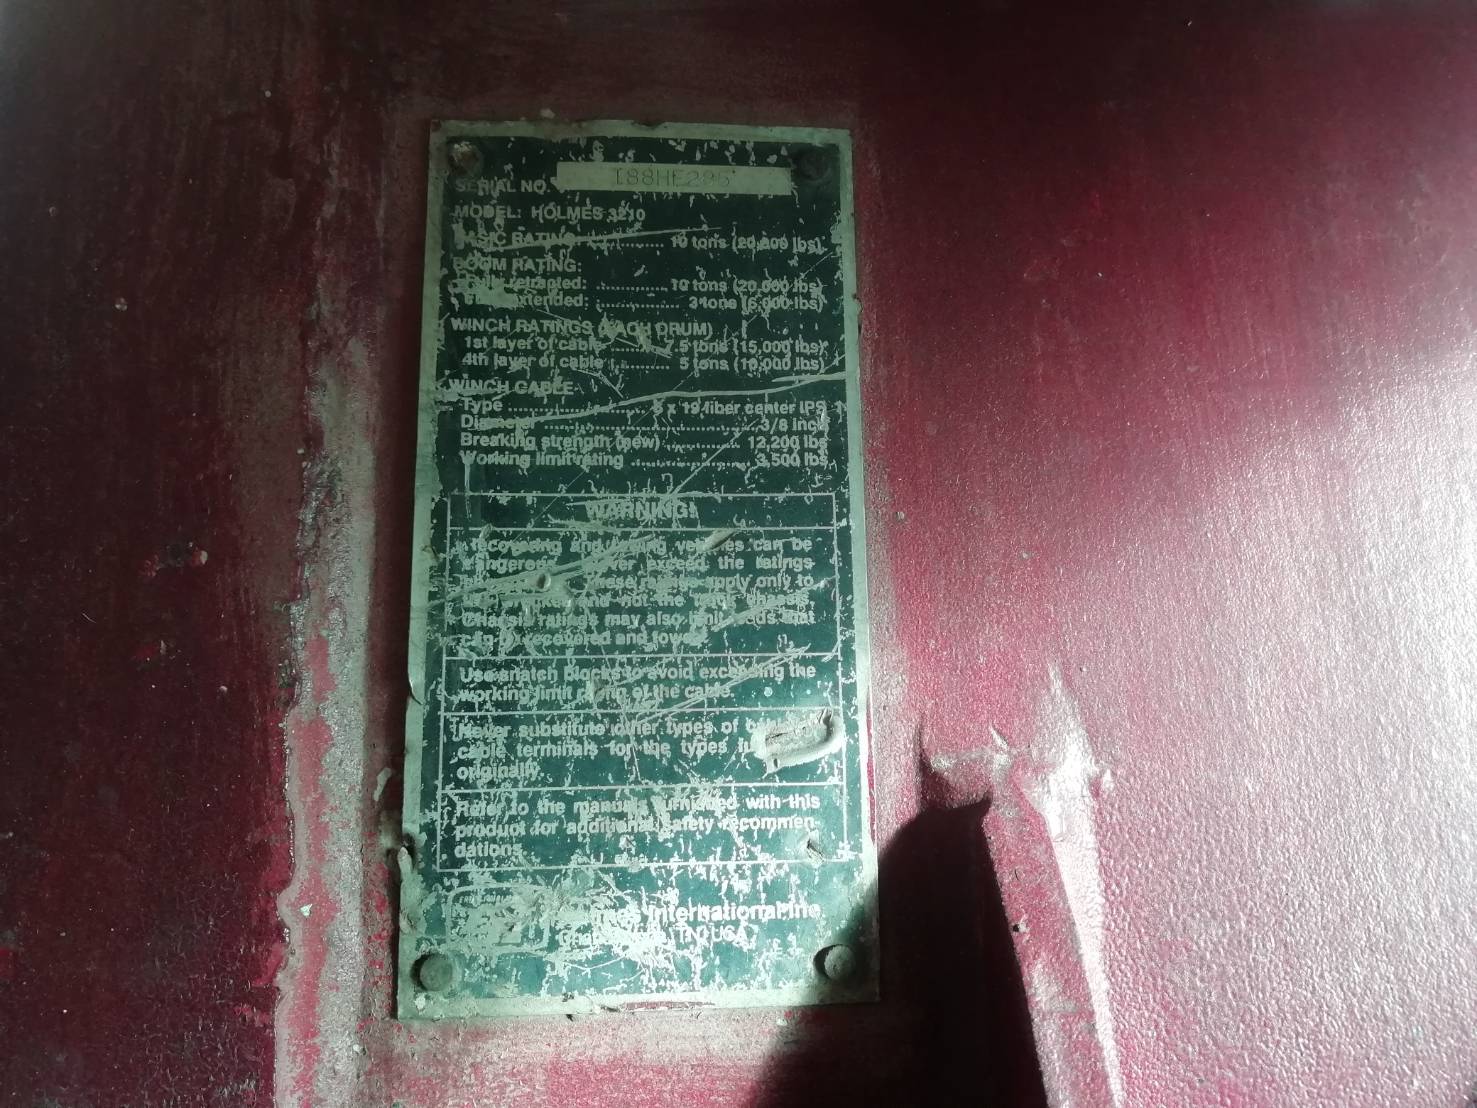 SERIAL NO. I88HE295
MODEL: HOLMES 3210
BASIC RATING: ............ 10 tons (20,000 lbs)
BOOM RATING:
retracted: ............... 10 tons (20,000 lbs)
extended: ............... 3 tons (6,000 lbs)
WINCH RATINGS (EACH DRUM)
1st layer of cable .......... 7.5 tons (15,000 lbs)
4th layer of cable .......... 5 tons (10,000 lbs)
WINCH CABLE
Type ........................ 6 x 19 fiber center IPS
Diameter ........................ 3/8 inch
Breaking strength (new) ............ 12,200 lbs
Working limit rating .................. 3,500 lbs
WARNING!
Recovering and towing vehicles can be
dangerous. Never exceed the ratings
These ratings apply only to
and not the
Chassis ratings may also limit loads that
can be recovered and towed.
Use snatch blocks to avoid exceeding the
working limit rating of the cable.
Never substitute other types of
cable terminals for the types
originally.
Refer to the manuals furnished with this
product for additional safety recommen-
dations.
Holmes International Inc.
TN USA